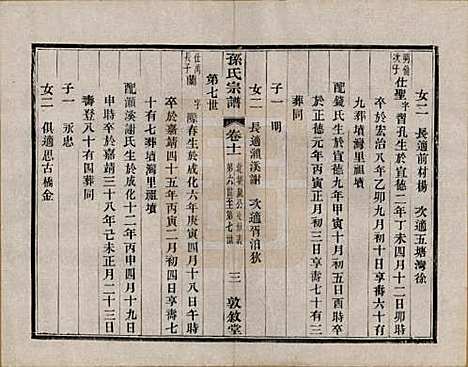 女二 長適前材楊 次適五塘灣徐
次子 仕聖 字習孔生於宣德二年丁未四月十二日卯時
卒於宏治八年乙卯九月初四日享壽六十九葬墳灣里祖墳
配 鏡氏生於宣德九年甲寅十月初五日酉時卒
於正德元年丙寅正月初三日享壽七十三
葬同
子一 明
女二 長適 溪謝 次適 狄
孫氏宗譜
卷十一
第六世至第七世
三
敦敘堂
第七世
仕 長子 蘭 字 春生於成化六年庚寅四月十八日午時
卒於嘉靖四十五年丙寅二月初四日享壽七
十有七葬墳灣里祖墳
配 溪謝氏生於成化十二年丙申四月十九日
申時卒於嘉靖三十八年己未正月二十三日
壽登八十有四葬同
子一 永忠
女二 俱適思古橋金